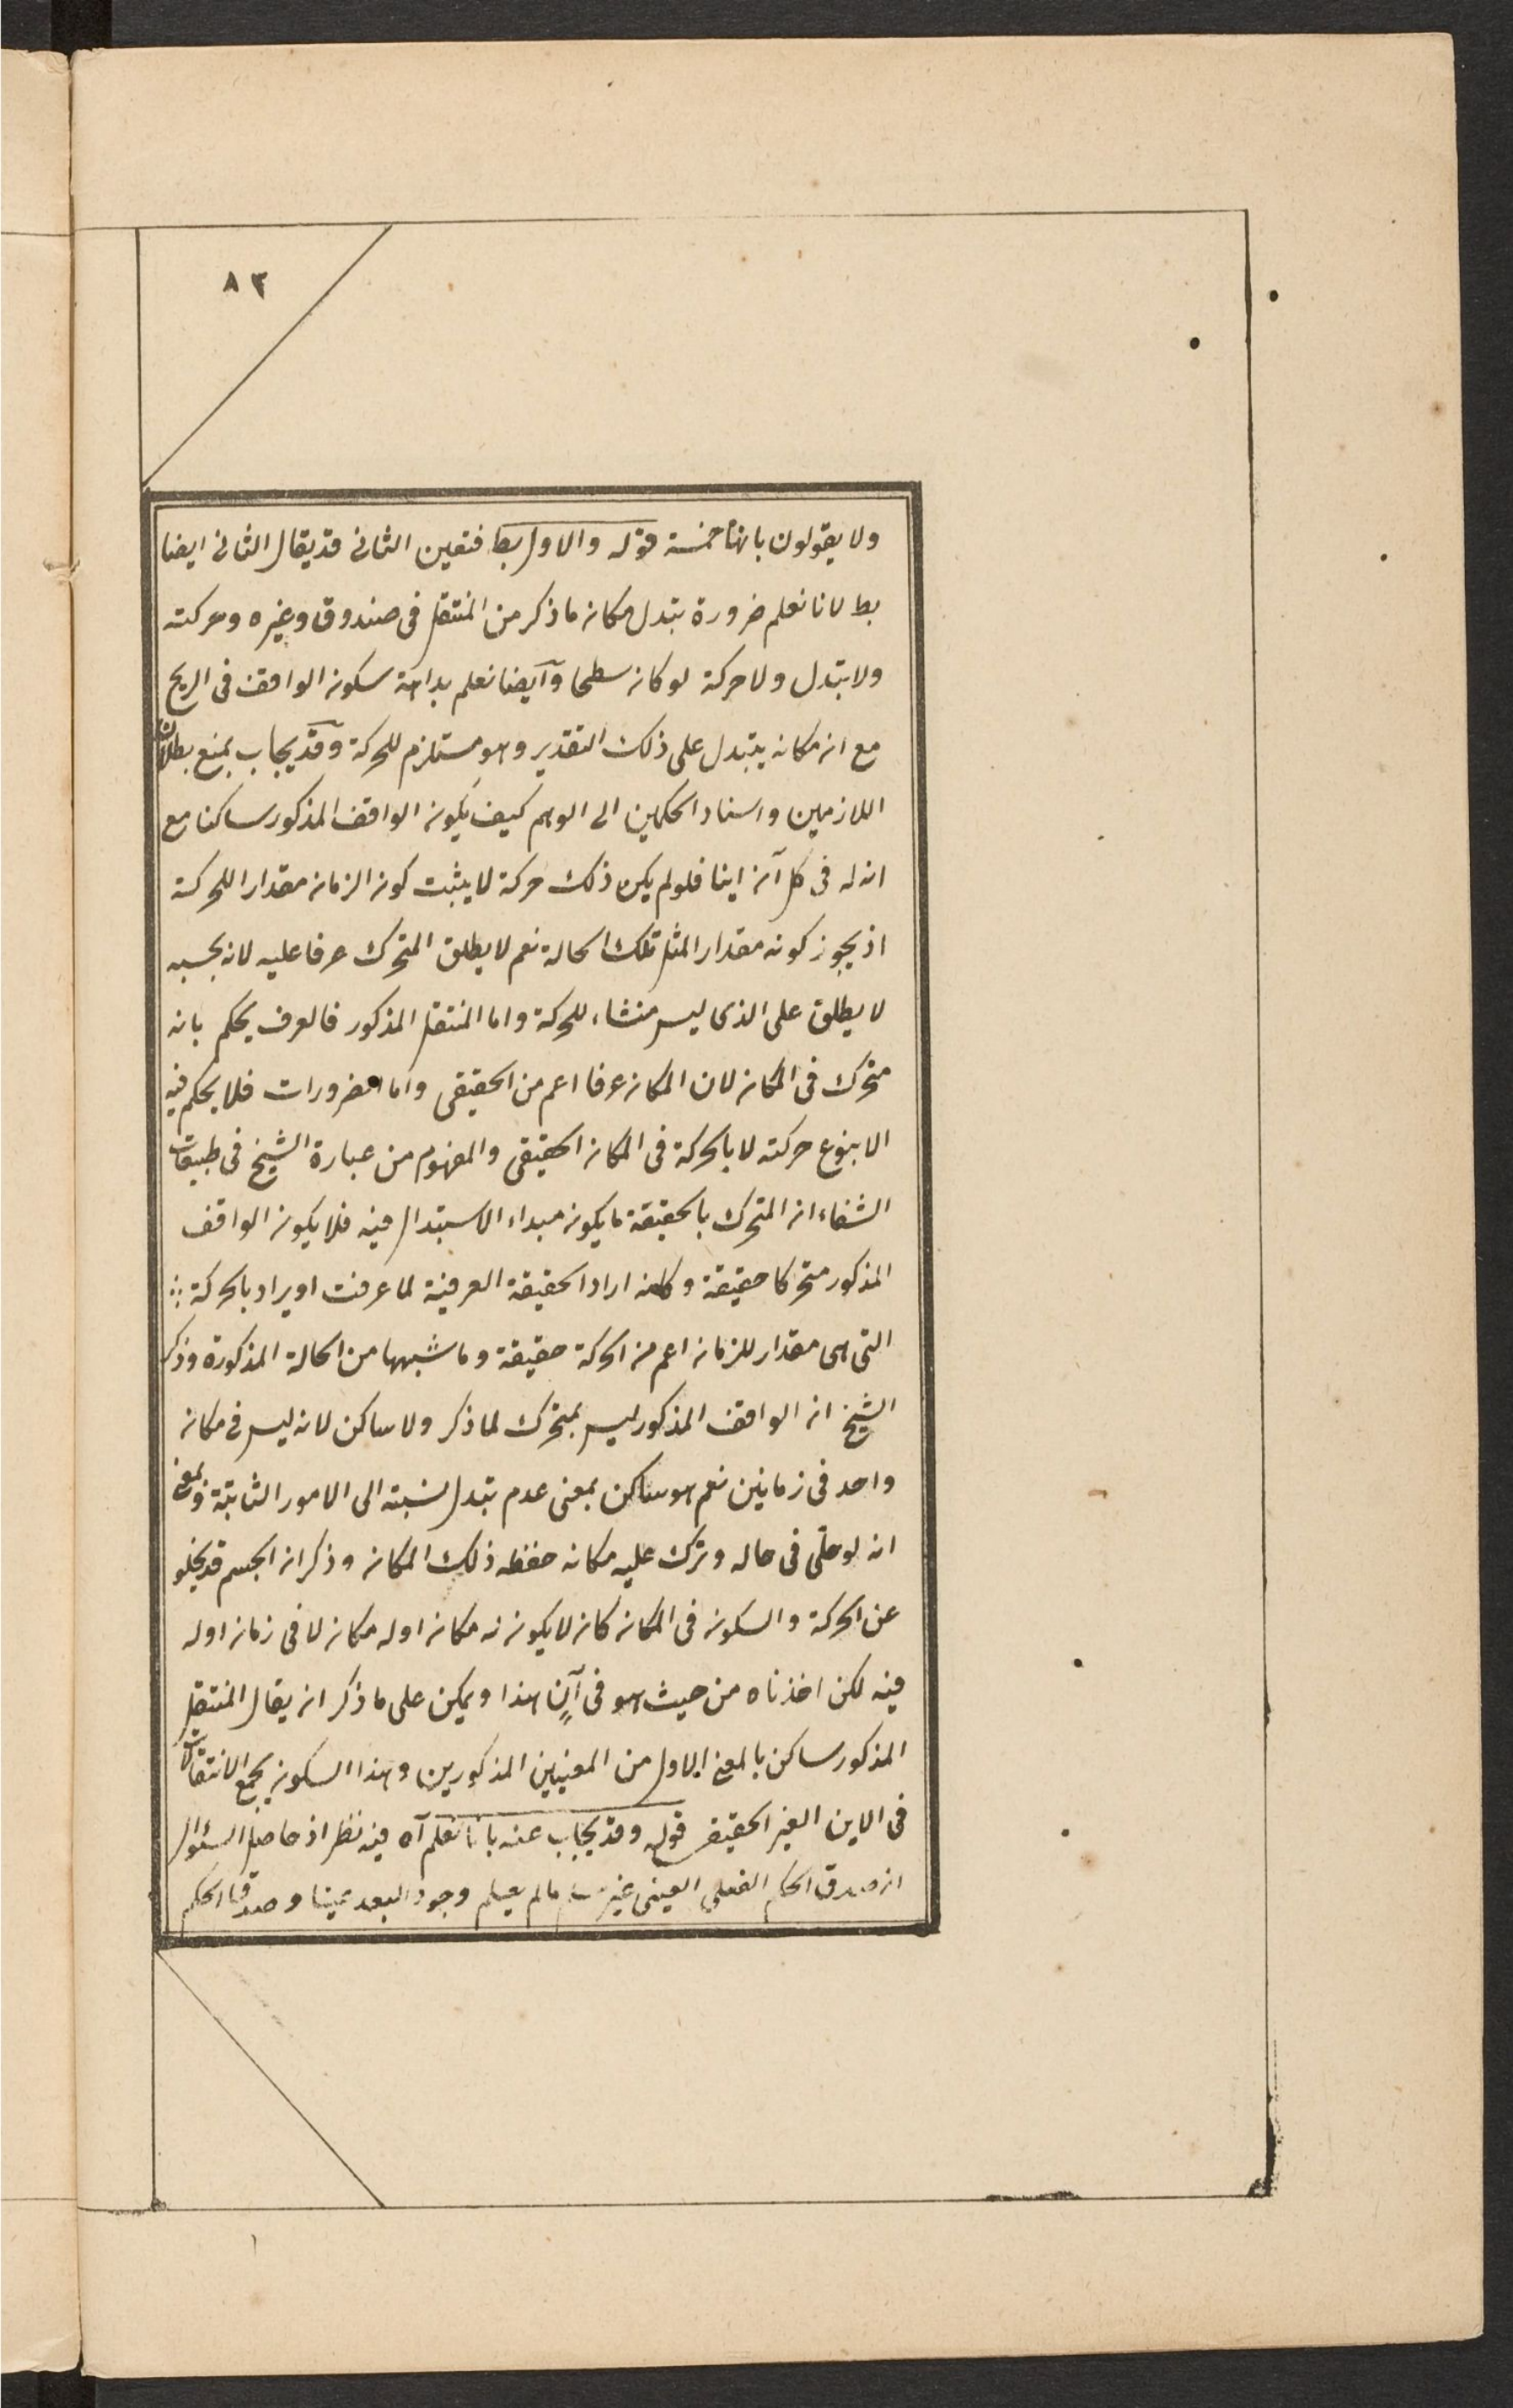 ٨٣
ولا يقولون بانها خمسة قوله والاول بط فتعين الثانى قد يقال الثانى ايضا
بط لانا نعلم ضرورة تبدل مكان ما ذكر من المنتقل فى صندوق وغيره وحركته
ولا تبدل ولا حركة لو كان سطحا وآيضا نعلم بداهة سكون الواقف فى الريح
مع ان مكانه يتبدل على ذلك التقدير وهو مستلزم للحركة وقد يجاب بمنع بطلان
اللازمين واسناد الحكمين الى الوهم كيف يكون الواقف المذكور ساكنا مع
ان له فى كل آن اينا فلو لم يكن ذلك حركة لا يثبت كون الزمان مقدارا للحركة
اذ يجوز كونه مقدارا لمثل تلك الحالة نعم لا يطلق المتحرك عرفا عليه لانه بحسبه
لا يطلق على الذى ليس منشاء للحركة واما المنتقل المذكور فالعرف يحكم بانه
متحرك فى المكان لان المكان عرفا اعم من الحقيقى واما الضرورات فلا يحكم فيه
الا بنوع حركته لا بالحركة فى المكان الحقيقى والمفهوم من عبارة الشيخ فى طبيعيات
الشفاء ان المتحرك بالحقيقة ما يكون مبداء الاستبدال فيه فلا يكون الواقف
المذكور متحركا حقيقة وكانه اراد الحقيقة العرفية لما عرفت او يراد بالحركة
التى هى مقدار للزمان اعم من الحركة حقيقة وما شبهها من الحالة المذكورة وذكر
الشيخ ان الواقف المذكور ليس بمتحرك لما ذكر ولا ساكن لانه ليس فى مكان
واحد فى زمانين نعم هو ساكن بمعنى عدم تبدل نسبته الى الامور الثابتة وبمعنى
انه لو خلّى فى حاله وترك عليه مكانه حفظ ذلك المكان وذكر ان الجسم قد يخلو
عن الحركة والسكون فى المكان كان لا يكون له مكان او له مكان لا فى زمان او له
فيه لكن اخذناه من حيث هو فى آنٍ هذا ويمكن على ما ذكر ان يقال المنتقل
المذكور ساكن بالمعنى الاول من المعنيين المذكورين وهذا السكون يجمع الانتقالات
فى الاين الغير الحقيقى قوله وقد يجاب عنه بانا نعلم آه فيه نظر اذ حاصل السئوال
ان صدق الحكم الفعلى العينى غير مسلم ما لم يعلم وجود البعد عينا وصدق الحكم